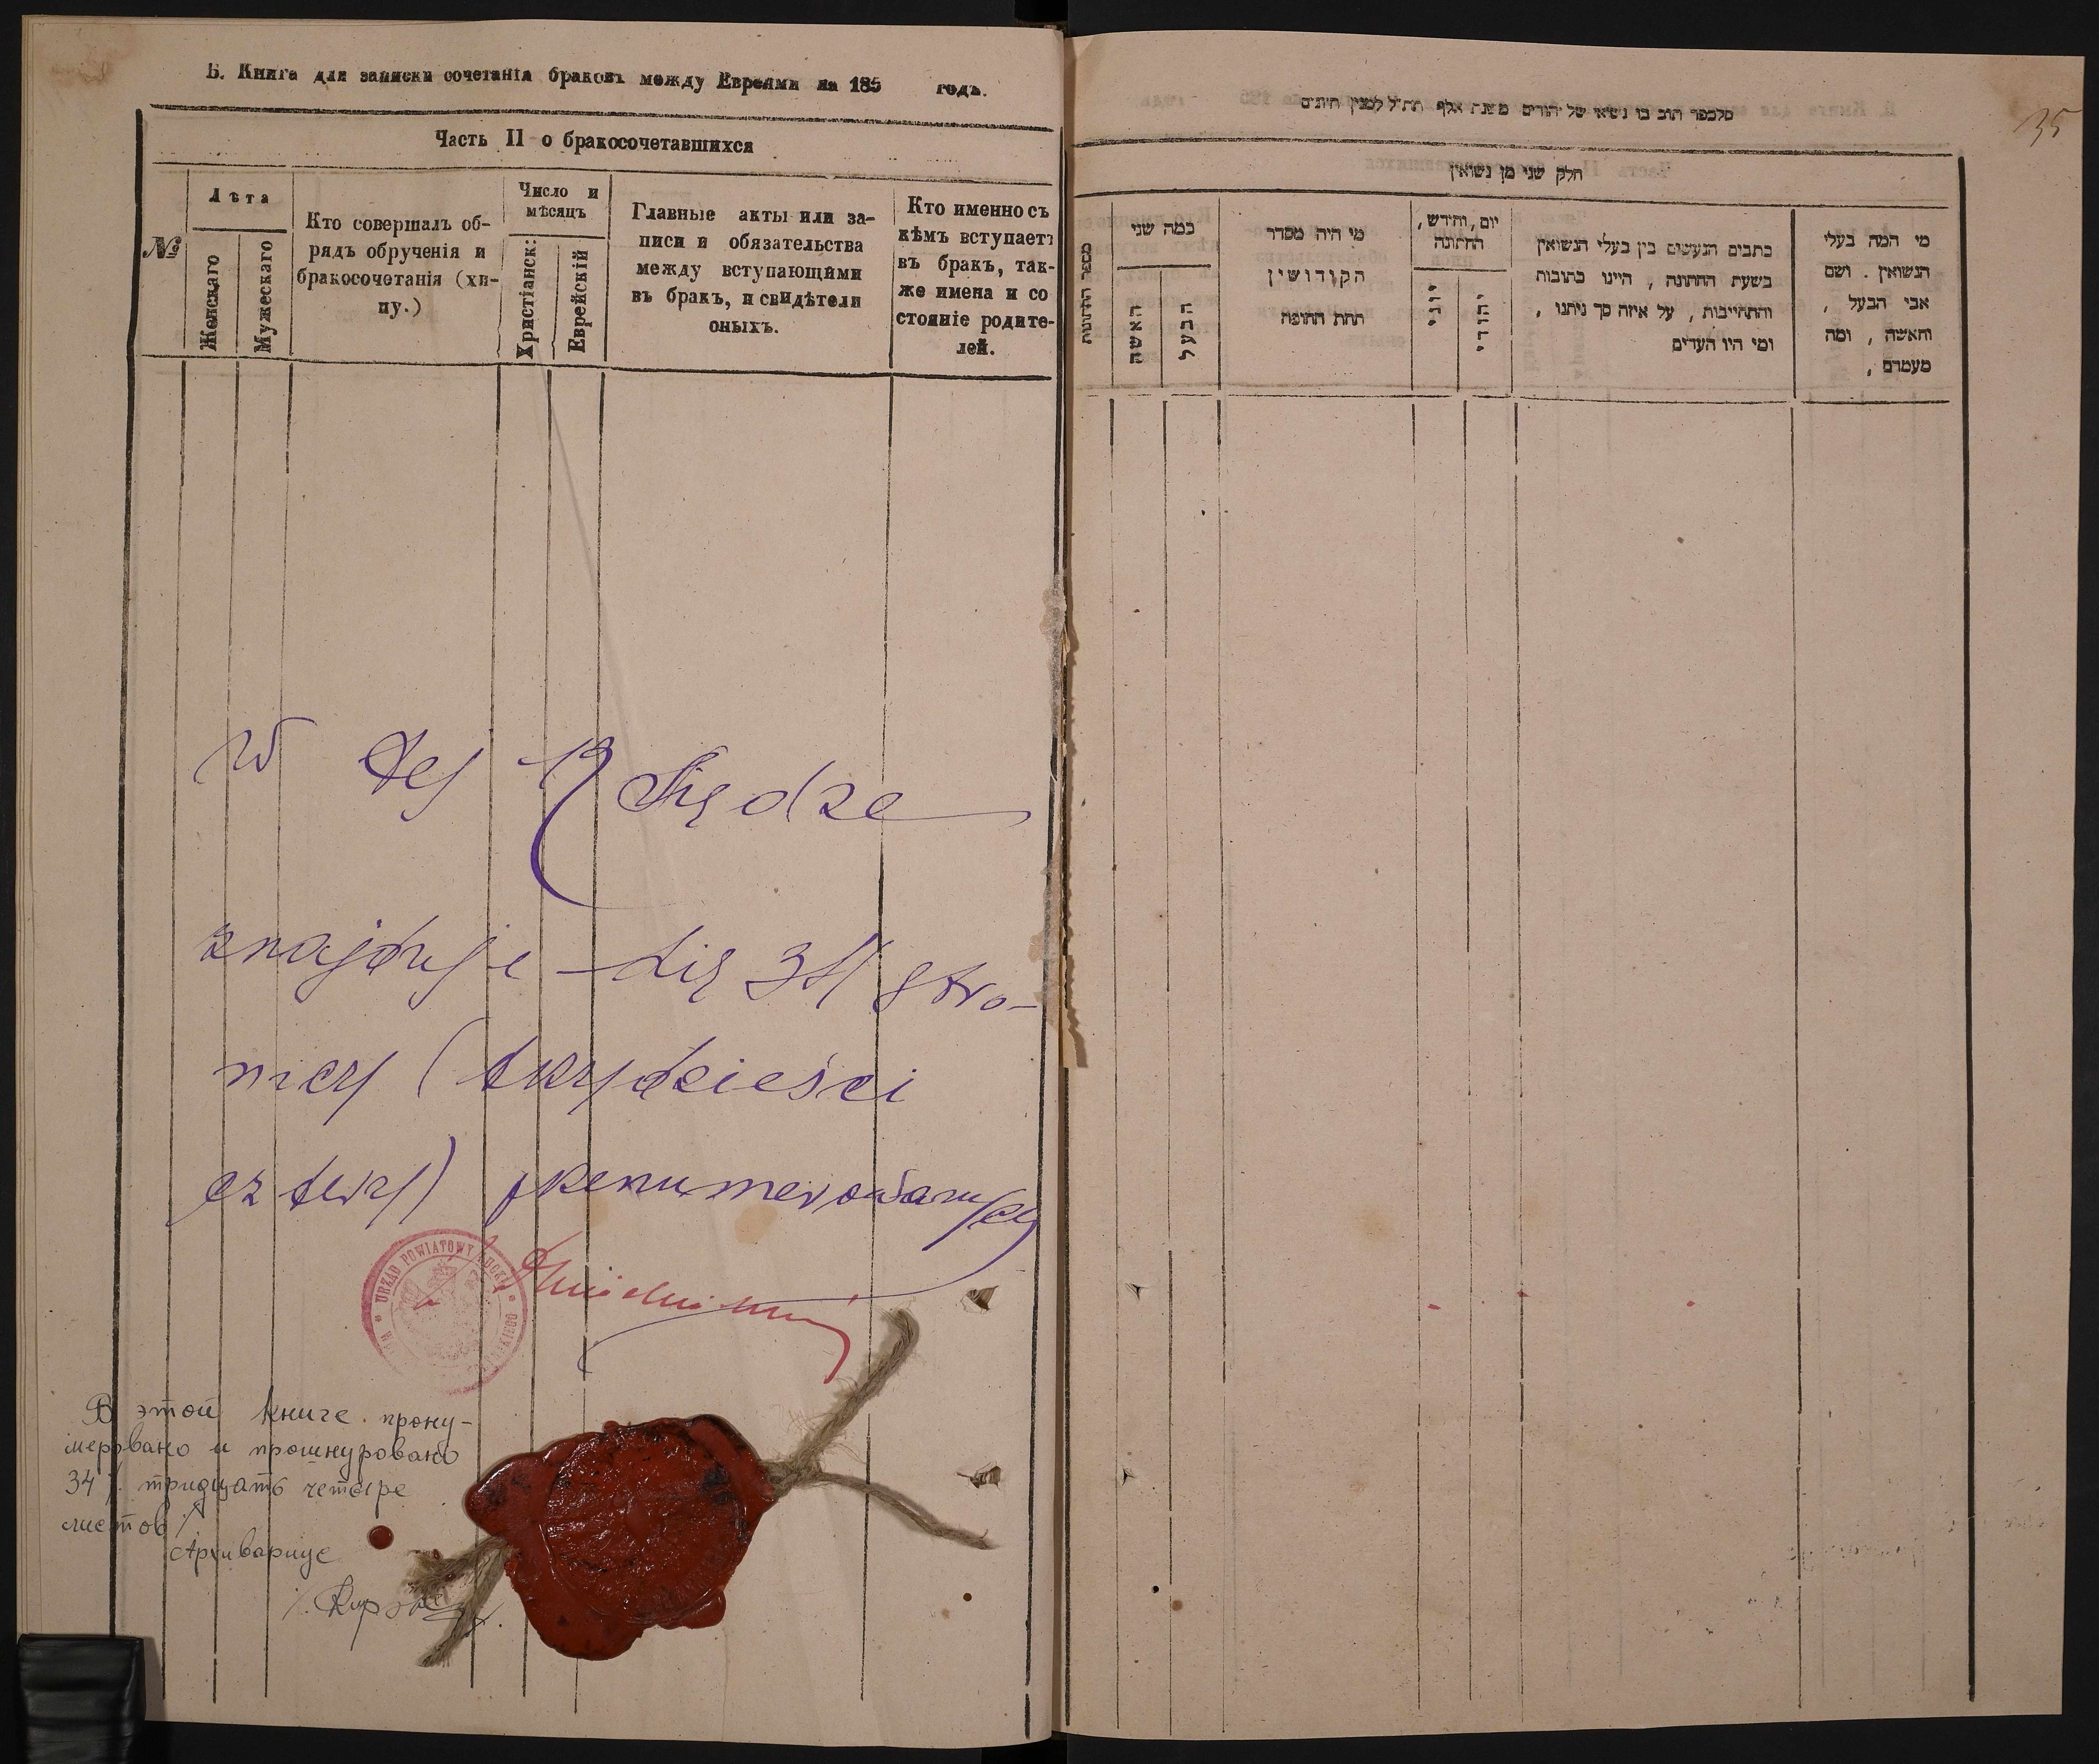 Б. Книга для записки сочетанія браковъ между Евреями на 185 годъ.
Часть II о бракосочетавшихся
№
Лѣта
Женскаго
Мужескаго
Кто совершалъ об-
рядъ обрученія и
бракосочетанія (хи-
пу.)
Число и
мѣсяцъ
Христіанск:
Еврейскій
Главные акты или за-
писи и обязательства
между вступающими
въ бракъ, и свидѣтели
оныхъ.
Кто именно съ
кѣмъ вступаетъ
въ бракъ, так-
же имена и со
стояніе родите-
лей.
W tej Księdze
znajduje się 34 stro-
nicy (trzydzieści
cztery) przenumerowanych
URZĄD POWIATOWY
В этой книге прону-
меровано и прошнуровано
34 /. тридцать четыре
листов ./
Архивариус
35
חלק שני מן נשואין
מספר החתונות
כמה שני
האשה
הבעל
מי היה מסדר
הקודושין
תחת החופה
יום, וחודש,
החתונה
יוני
יהודי
כתבים הנעשים בין בעלי הנשואין
בשעת החתונה, היינו כתובות
והתחייבות, על איזה סך ניתנו,
ומי היו העדים
מי המה בעלי
הנשואין. ושם
אבי הבעל,
והאשה, ומה
מעמדם,